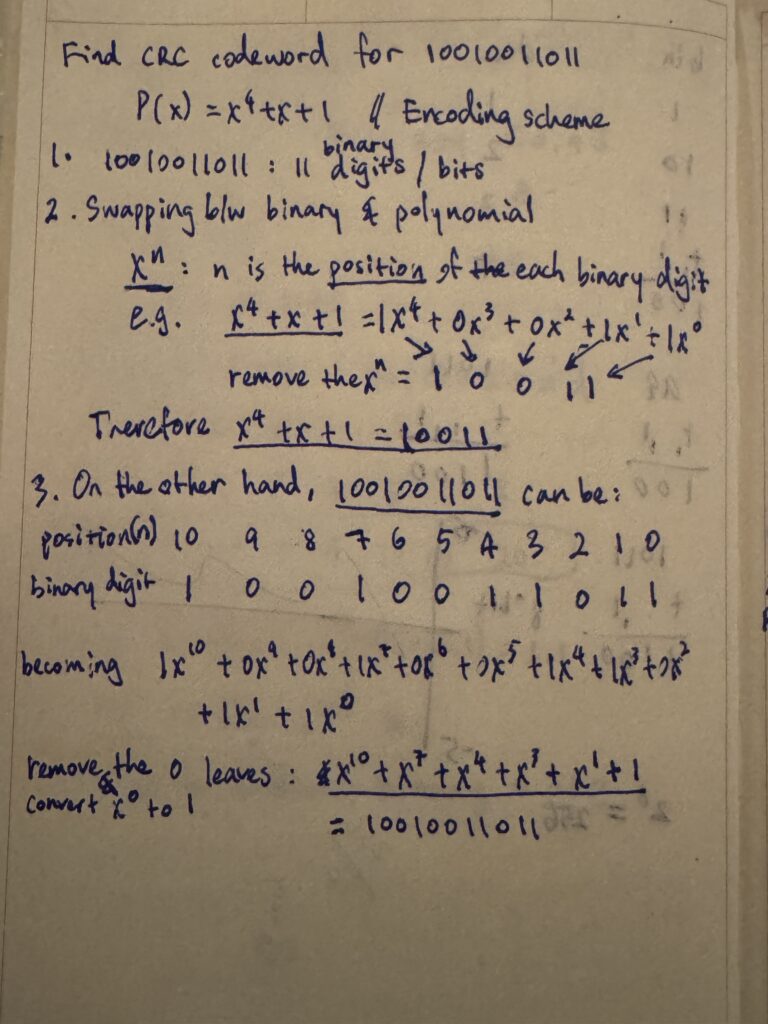 Find CRC codeword for 10010011011
P(x) = x⁴+x+1 // Encoding scheme
1. 10010011011 : 11 binary digits / bits
2. Swapping b/w binary & polynomial
xⁿ : n is the position of the each binary digit
e.g. x⁴ + x + 1 = 1x⁴ + 0x³ + 0x² + 1x¹ + 1x⁰
remove the xⁿ = 1 0 0 1 1
Therefore x⁴ + x + 1 = 10011
3. On the other hand, 10010011011 can be:
position(n) 10 9 8 7 6 5 4 3 2 1 0
binary digit 1 0 0 1 0 0 1 1 0 1 1
becoming 1x¹⁰ + 0x⁹ + 0x⁸ + 1x⁷ + 0x⁶ + 0x⁵ + 1x⁴ + 1x³ + 0x²
+ 1x¹ + 1x⁰
remove the 0 leaves : x¹⁰ + x⁷ + x⁴ + x³ + x¹ + 1
& convert x⁰ to 1
= 10010011011